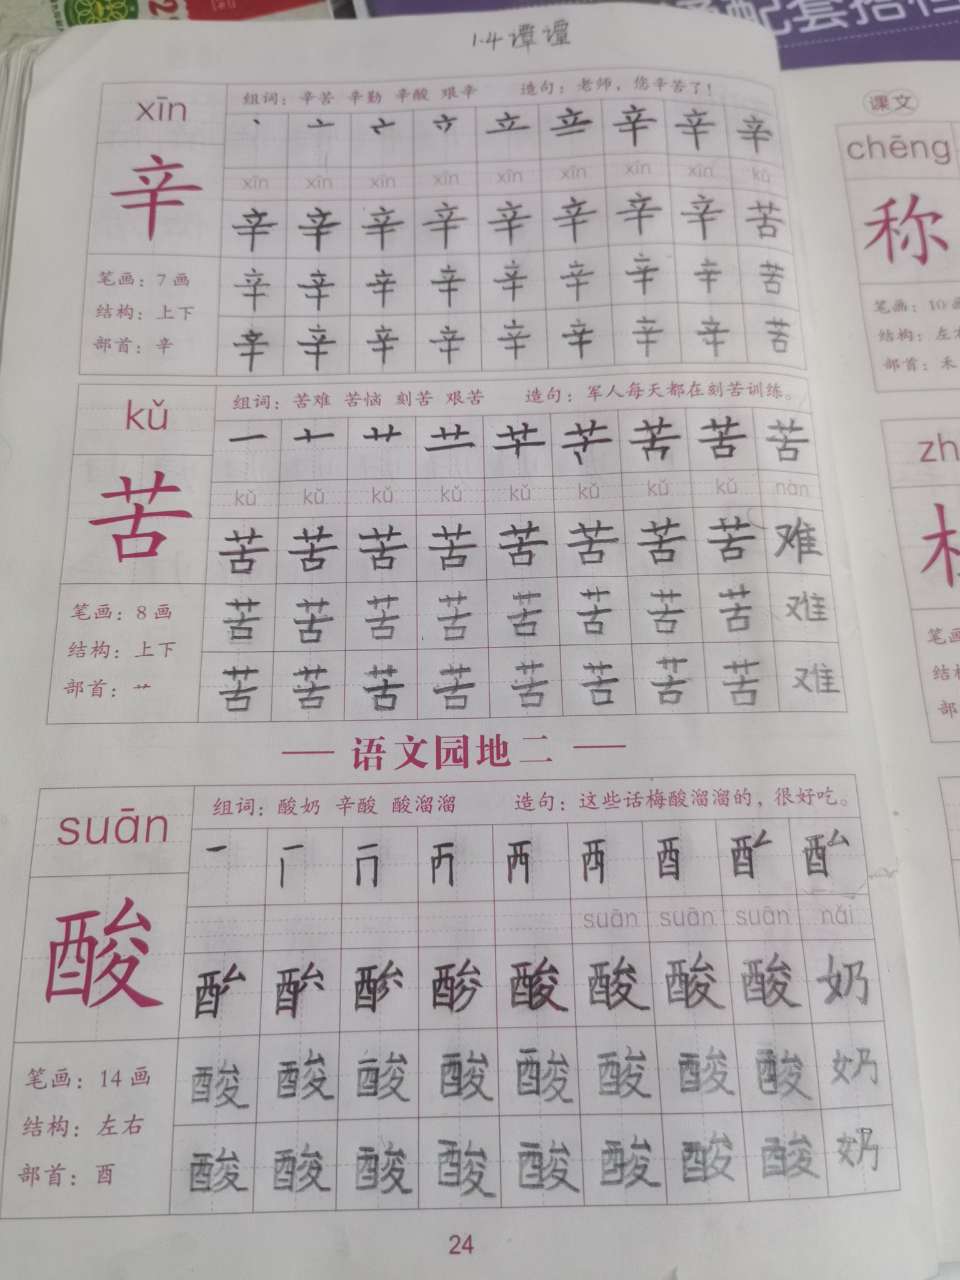 1.4 谭谭
xīn
组词：辛苦 辛勤 辛酸 艰辛 造句：老师，您辛苦了！
辛 辛 辛
xīn xīn xīn xīn xīn xīn xīn xīn kǔ
辛
辛 辛 辛 辛 辛 辛 辛 辛 苦
笔画：7 画
结构：上下
部首：辛
辛 辛 辛 辛 辛 辛 辛 辛 苦
辛 辛 辛 辛 辛 辛 辛 辛 苦
kǔ
组词：苦难 苦恼 刻苦 艰苦 造句：军人每天都在刻苦训练。
一 十 艹 苦 苦 苦
kǔ kǔ kǔ kǔ kǔ kǔ kǔ kǔ nàn
苦
苦 苦 苦 苦 苦 苦 苦 苦 难
笔画：8 画
结构：上下
部首：艹
苦 苦 苦 苦 苦 苦 苦 苦 难
苦 苦 苦 苦 苦 苦 苦 苦 难
语文园地二
suān
组词：酸奶 辛酸 酸溜溜 造句：这些话梅酸溜溜的，很好吃。
一 丙 西 酉
suān suān suān nǎi
酸
酸 酸 酸 酸 奶
笔画：14 画
结构：左右
部首：酉
酸 酸 酸 酸 酸 酸 酸 酸 奶
酸 酸 酸 酸 酸 酸 酸 酸 奶
24
配套搭
课文
chēng
称
笔画：10 画
结构：左右
部首：禾
zh
笔画
结构
部